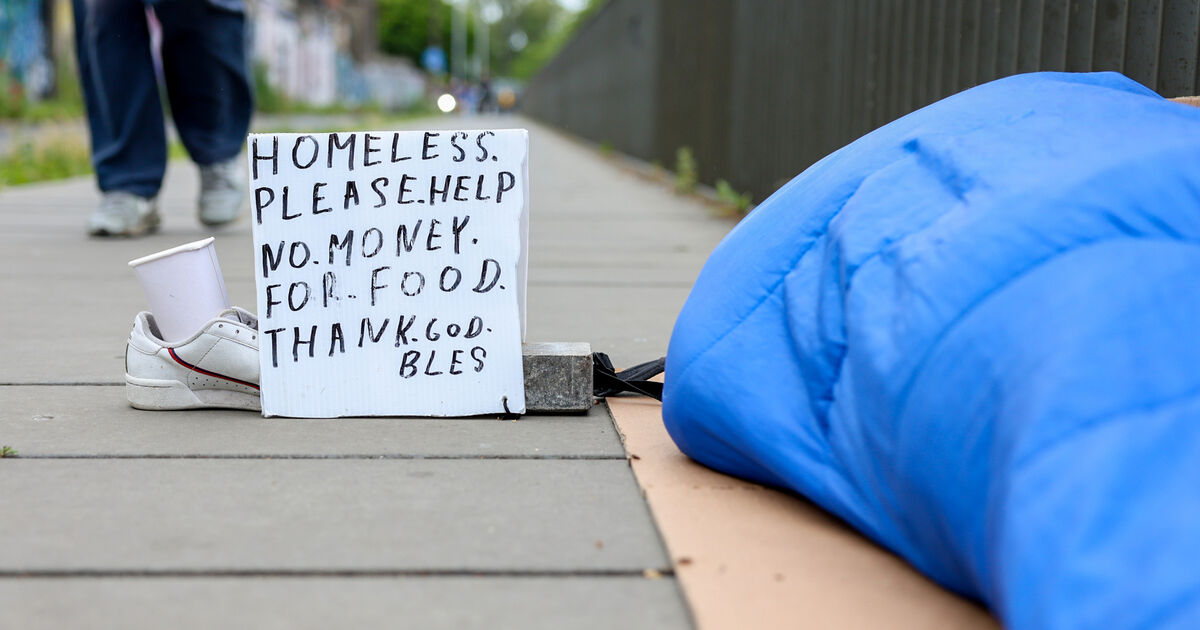 HOMELESS.
PLEASE.HELP
NO.MONEY.
FOR.FOOD.
THANK.GOD.
BLES